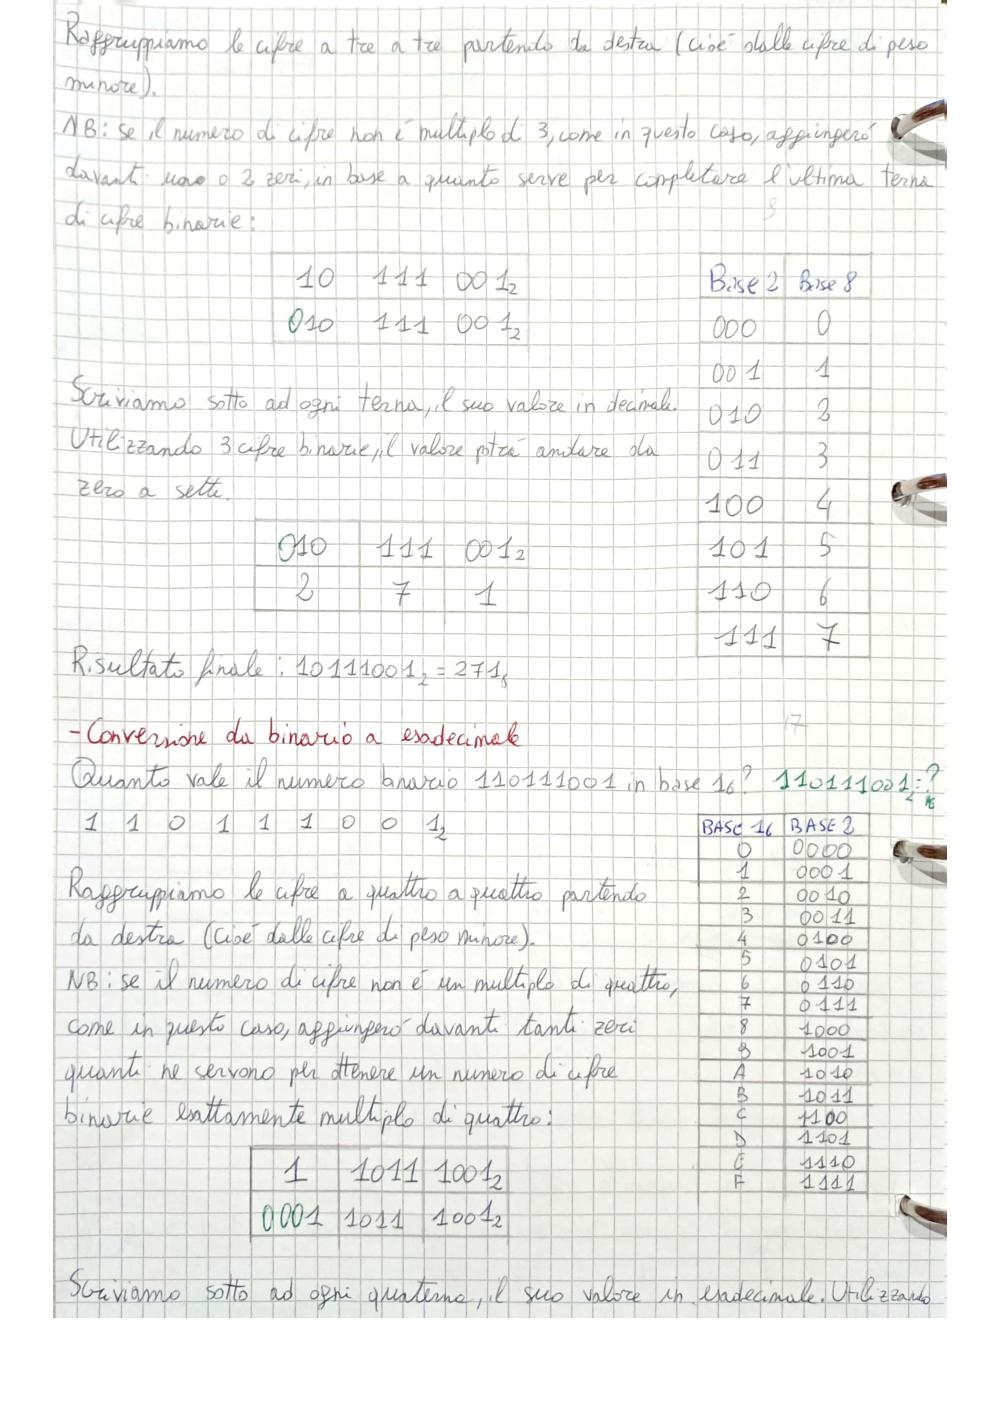 Raggruppiamo le cifre a tre a tre partendo da destra (cioé dalle cifre di peso
minore).
NB: se il numero di cifre non é multiplo di 3, come in questo caso, aggiungeró
davanti uno o 2 zeri, in base a quanto serve per completare l'ultima terna
di cifre binarie:
10 111 001₂
010 111 001₂
Base 2 Base 8
000 0
001 1
010 2
011 3
100 4
101 5
110 6
111 7
Scriviamo sotto ad ogni terna, il suo valore in decimale.
Utilizzando 3 cifre binarie, il valore potrá andare da
zero a sette.
010 111 001₂
2 7 1
Risultato finale: 10111001₂ = 271₈
17
- Conversione da binario a esadecimale
Quanto vale il numero binario 110111001 in base 16? 110111001₂=?₁₆
1 1 0 1 1 1 0 0 1₂
BASE 16 BASE 2
0 0000
1 0001
2 0010
3 0011
4 0100
5 0101
6 0110
7 0111
8 1000
9 1001
A 1010
B 1011
C 1100
D 1101
E 1110
F 1111
Raggruppiamo le cifre a quattro a quattro partendo
da destra (cioé dalle cifre di peso minore).
NB: se il numero di cifre non é un multiplo di quattro,
come in questo caso, aggiungeró davanti tanti zeri
quanti ne servono per ottenere un numero di cifre
binarie esattamente multiplo di quattro:
1 1011 1001₂
0001 1011 1001₂
Scriviamo sotto ad ogni quaterna, il suo valore in esadecimale. Utilizzando